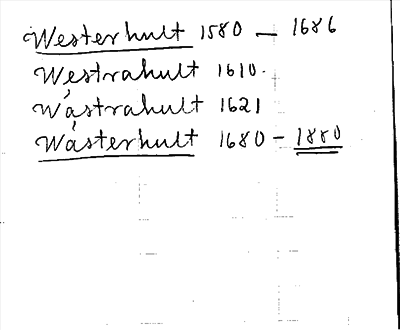 Westerhult 1580 — 1686
Westrahult 1610.
Wästrahult 1621
Wästerhult 1680 - 1880